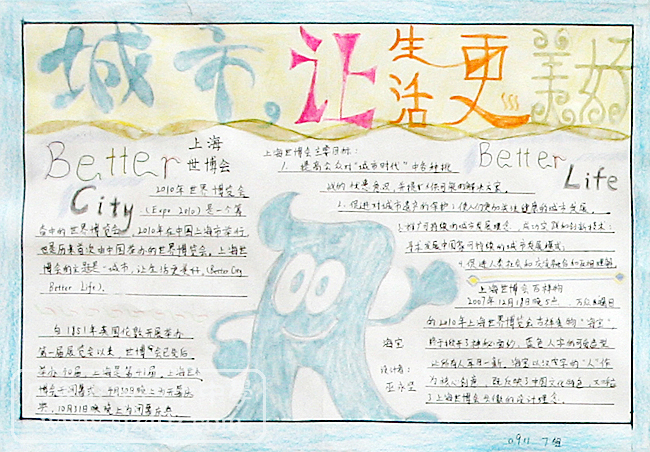 城市，让生活更美好
Better City
上海
世博会
2010年世界博览会
(Expo 2010)是一个筹
备中的世界博览会，2010年在中国上海市举行
也是历来首次由中国举办的世界博览会。上海世
博会的主题是"城市，让生活更美好。(Better City
Better Life)。
自1851年英国伦敦开展举办
第一届展览会以来，世博会已先后
举办40届，上海是第41届，上海世
博会于
4月30日晚上
10月31日晚
上海世博会主要目标：
1. 提高公众对"城市时代"中各种挑
战的忧患意识，并提供可能的解决方案。
2. 促进对城市遗产的保护；使人们更加关注健康的城市发展。
3. 推广可持续的城市发展理念，成功实践和创新技术；
寻求发展中国家可持续的城市发展模式；
4. 促进人类社会的交流融合和理解
Better Life
上海世博会吉祥物
2007年12月18日晚8点，万众瞩目
的2010年上海世界博览会吉祥物"海宝"
终于掀开了神秘面纱，蓝色"人"字的可爱造型
让所有人耳目一新，海宝以汉字的"人"作
为核心创意，既反映了中国文化的特色，又呼应
了上海世博会会徽的设计理念。
海宝
设计者：
巫永坚